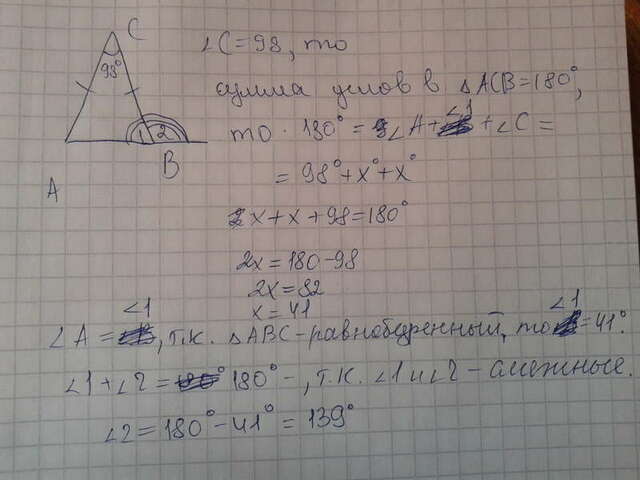 C
98°
1 2
B
A
∠C=98, то
сумма углов в △ACB=180°,
то 180°=∠A+∠1+∠C=
=98°+x°+x°
x+x+98=180°
2x=180-98
2x=82
x=41
∠A=∠1, т.к. △ABC-равнобедренный, то ∠1=41°.
∠1+∠2=180°-, т.к. ∠1 и ∠2-смежные.
∠2=180°-41°=139°